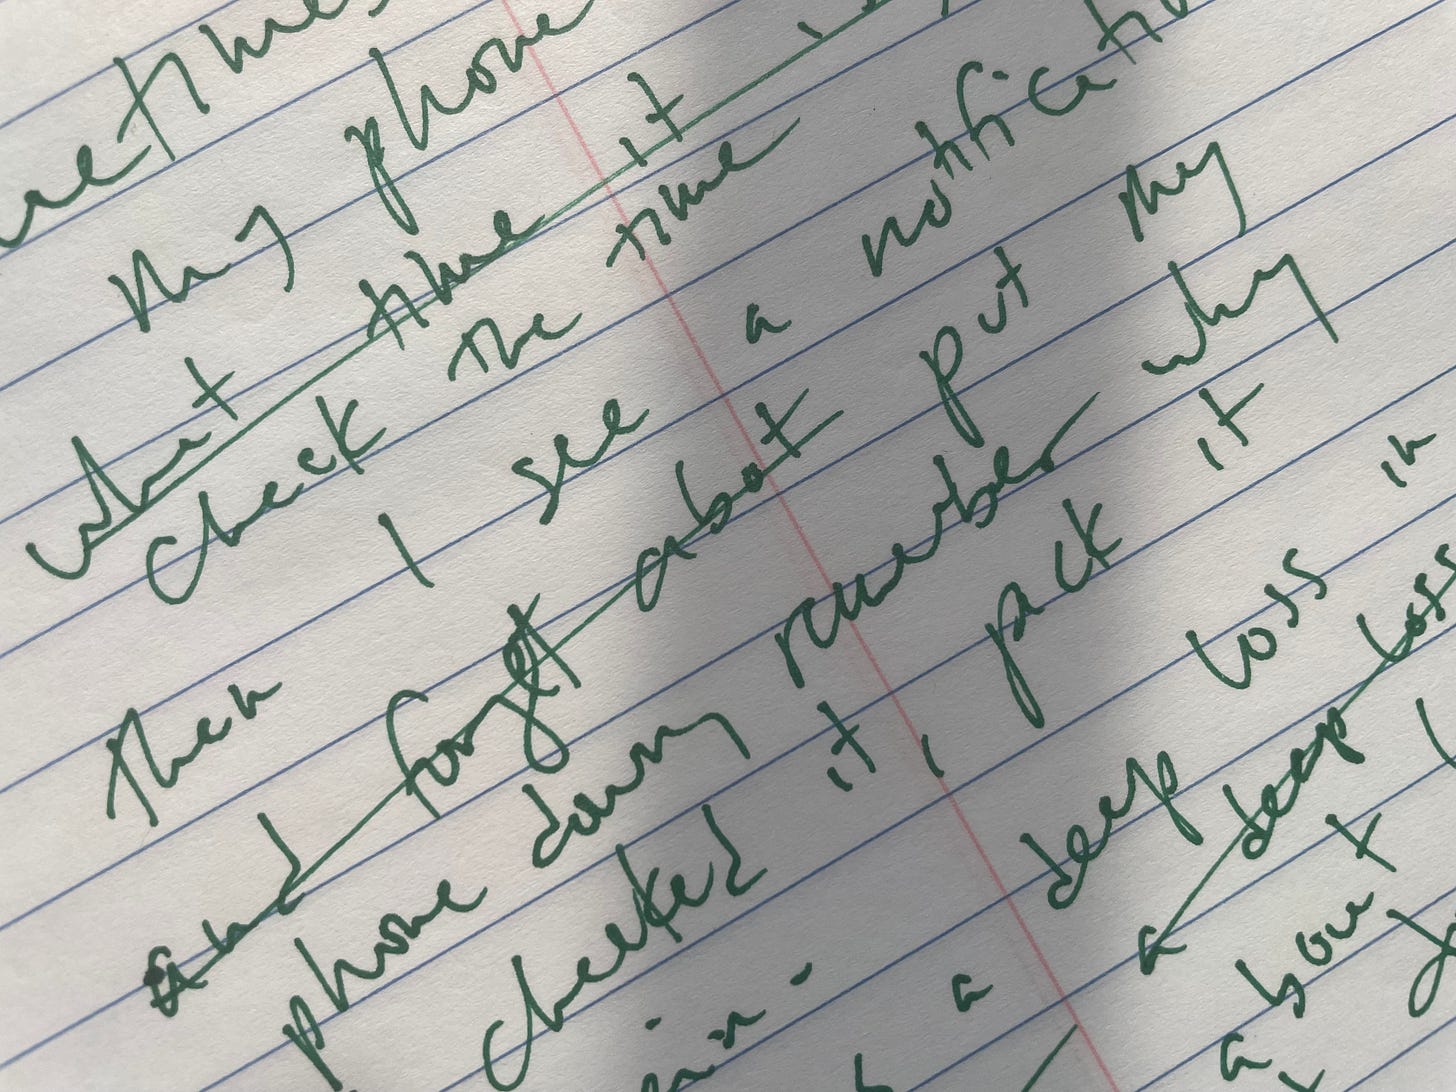 metimes
my phone
what time it is
check the time
Then I see a notificati
and forget about put my
phone down remember why
checked it, pick it
ain. a deep loss in
a deep loss
about
a